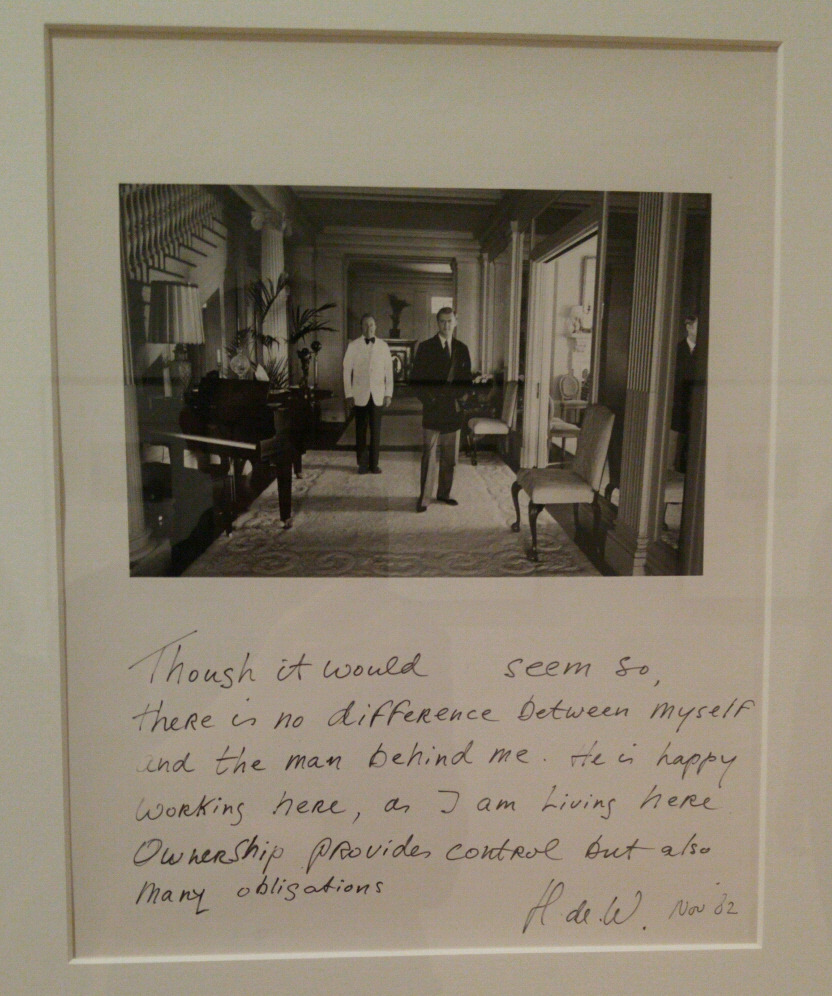 Though it would seem so,
there is no difference between myself
and the man behind me. He is happy
working here, as I am living here
Ownership provides control but also
many obligations
H de. W. Nov 82